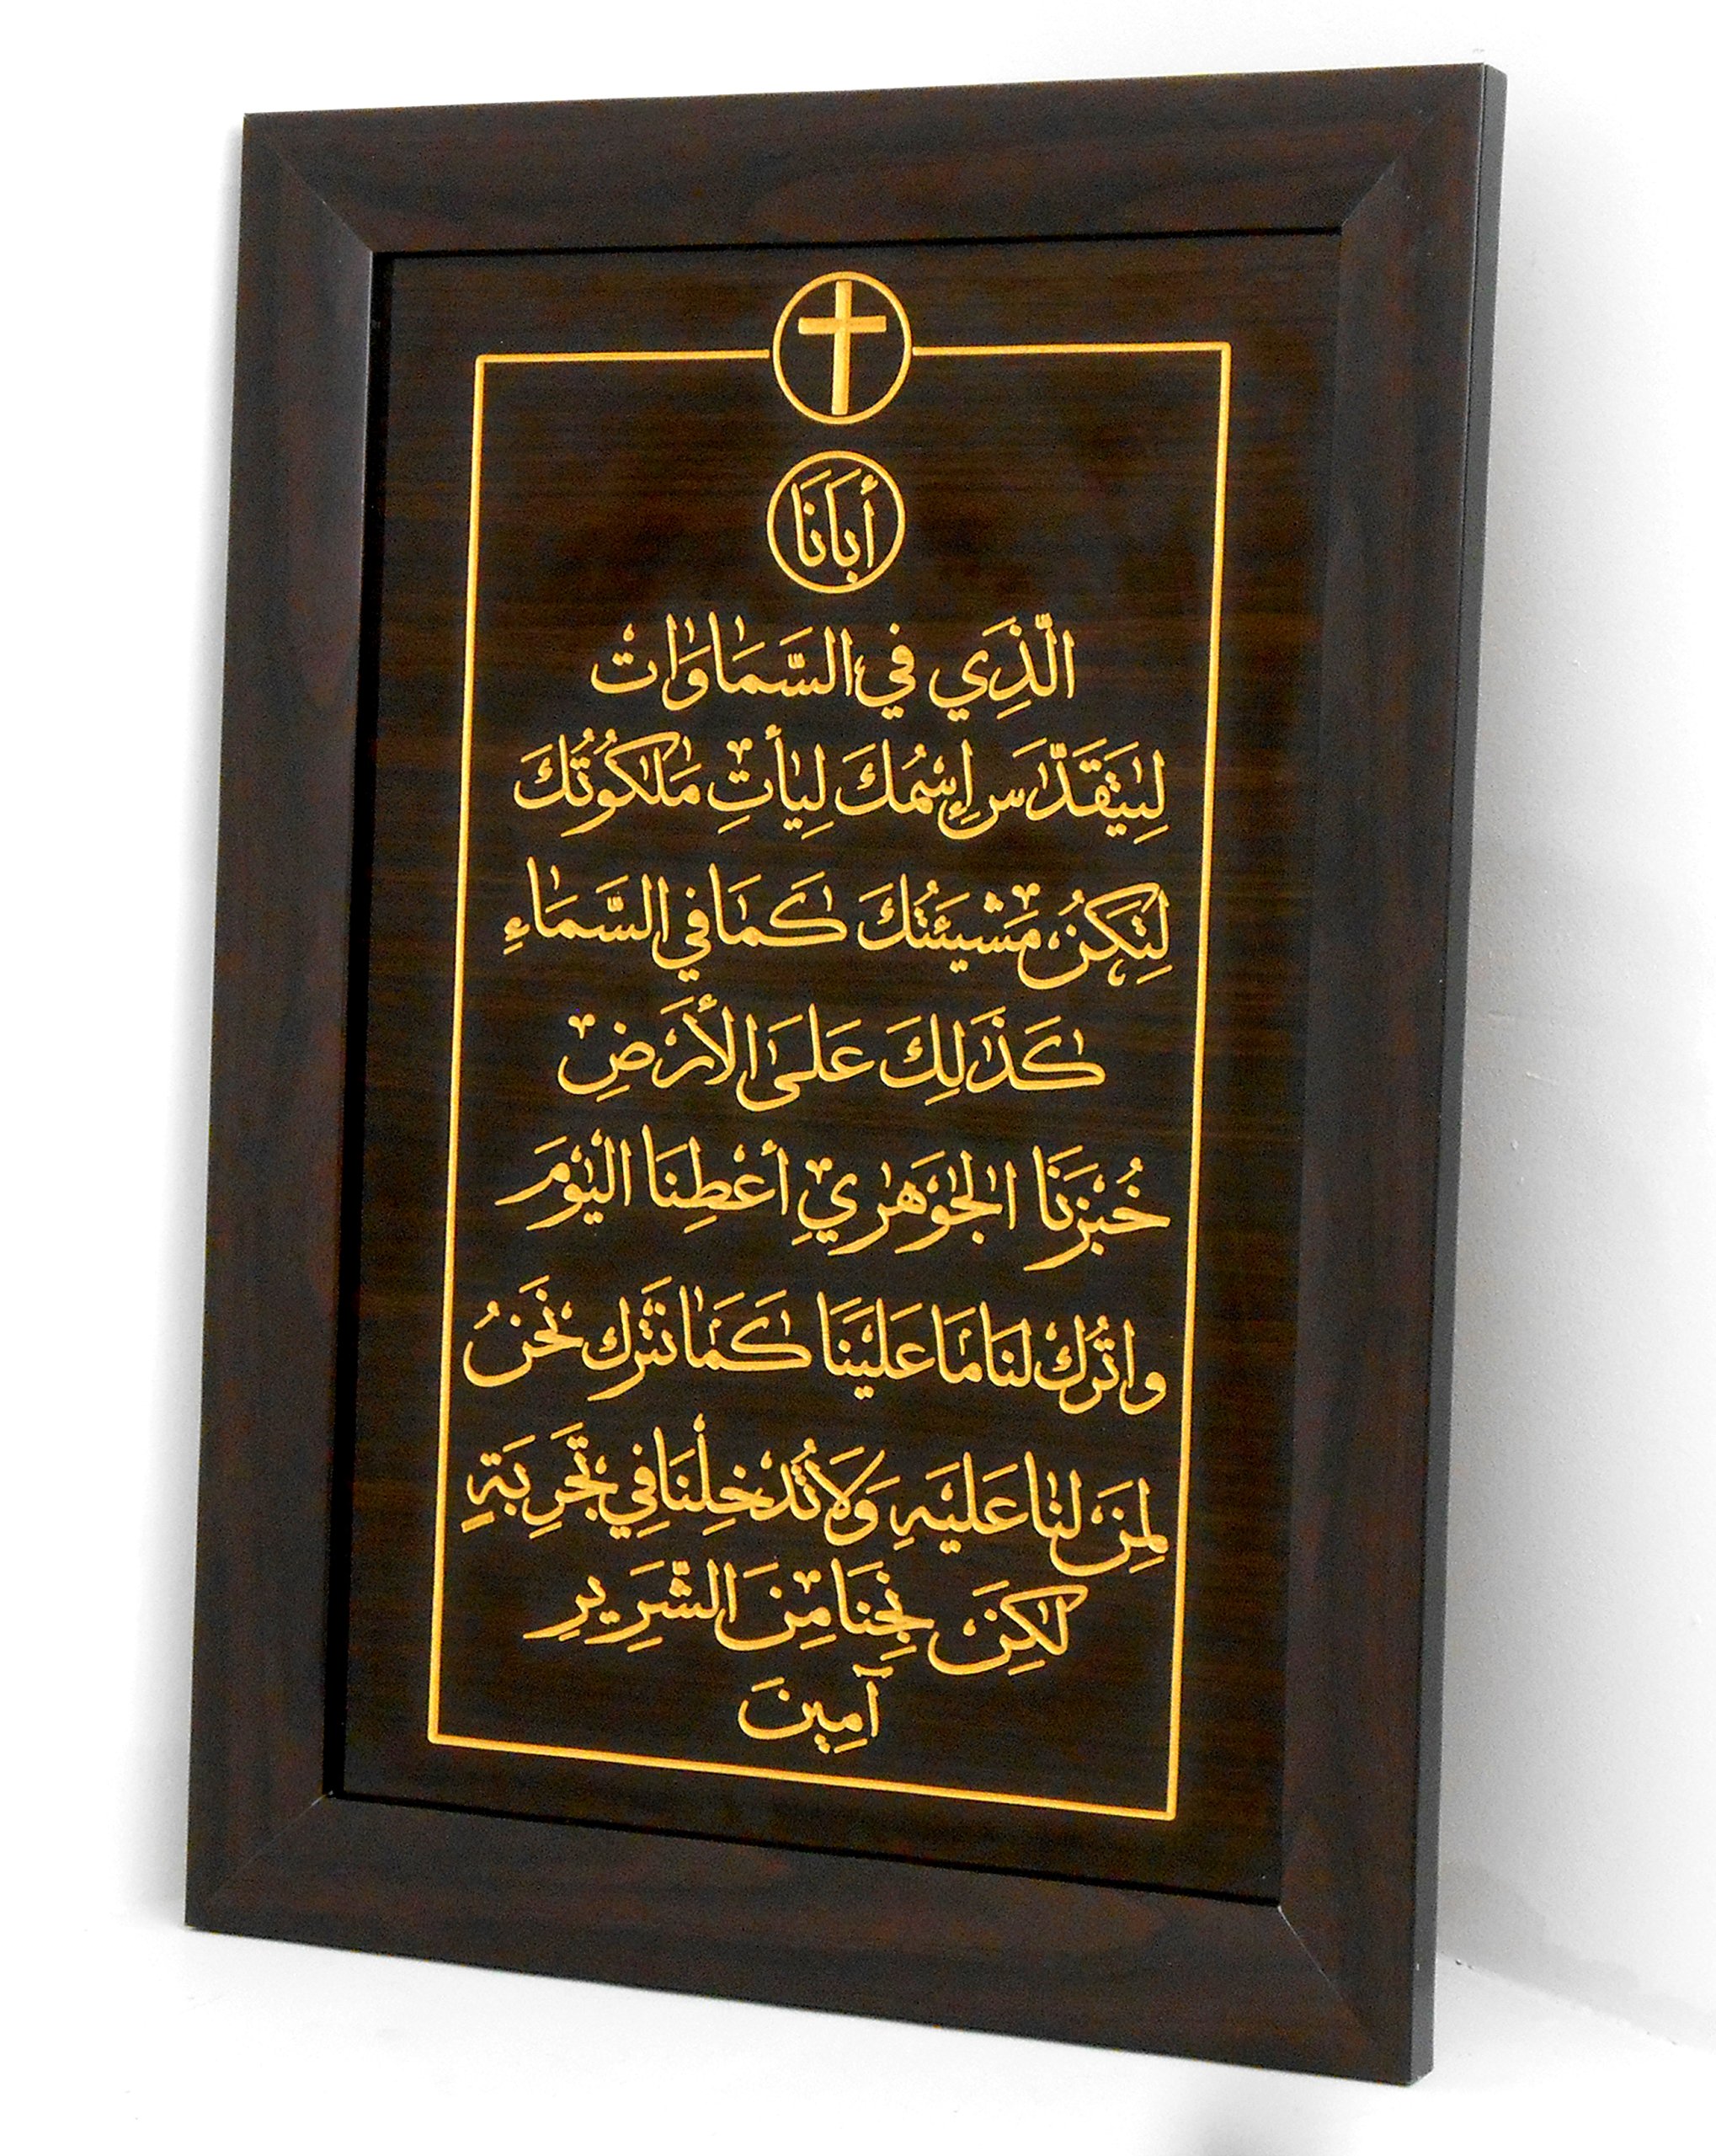 أَبَانَا
الَّذِي فِي السَّمَاوَات
لِيَتَقَدَّس إِسْمُكَ لِيَأتِ مَلَكُوتُكَ
لِتَكُنْ مَشِيئَتُكَ كَمَا فِي السَّمَاءِ
كَذَلِكَ عَلَى الأَرْضِ
خُبْزَنَا الجَوْهَرِي أعْطِنَا اليَوْمَ
واتْرُكْ لنَا مَا عَلَيْنَا كَمَا نَتْرك نَحْنُ
لِمَنْ لنَا عَلَيْهِ وَلَا تُدْخِلْنَا فِي تَجْرِبَةٍ
لَكِنْ نَجِنَا مِنَ الشِّرِيرِ
آمِينَ